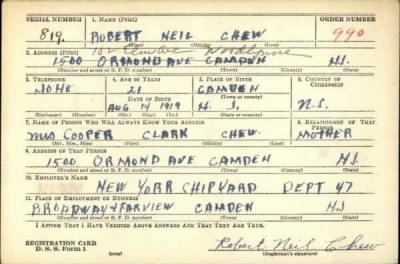 SERIAL NUMBER 1. NAME (Print) ORDER NUMBER
819. ROBERT NEIL CHEW 990
(First) (Middle) (Last)
2. ADDRESS (Print)
1500 ORMOND AVE CAMDEN N.J.
(Number and street or R. F. D. number) (Town) (County) (State)
3. TELEPHONE 4. AGE IN YEARS 5. PLACE OF BIRTH 6. COUNTRY OF CITIZENSHIP
NONE 21 CAMDEN
DATE OF BIRTH (Town or county)
AUG 14 1919 N. J. U.S.
(Exchange) (Number) (Mo.) (Day) (Yr.) (State or country)
7. NAME OF PERSON WHO WILL ALWAYS KNOW YOUR ADDRESS 8. RELATIONSHIP OF THAT PERSON
MRS COOPER CLARK CHEW. MOTHER
(Mr., Mrs., Miss) (First) (Middle) (Last)
9. ADDRESS OF THAT PERSON
1500 ORMOND AVE CAMDEN NJ
(Number and street or R. F. D. number) (Town) (County) (State)
10. EMPLOYER'S NAME
NEW YORK SHIPYARD DEPT 47
11. PLACE OF EMPLOYMENT OR BUSINESS
BROADWAY & FARVIEW CAMDEN NJ
(Number and street or R. F. D. number) (Town) (County) (State)
I AFFIRM THAT I HAVE VERIFIED ABOVE ANSWERS AND THAT THEY ARE TRUE.
Robert Neil Chew
REGISTRATION CARD
D. S. S. Form 1 (over) (Registrant's signature)